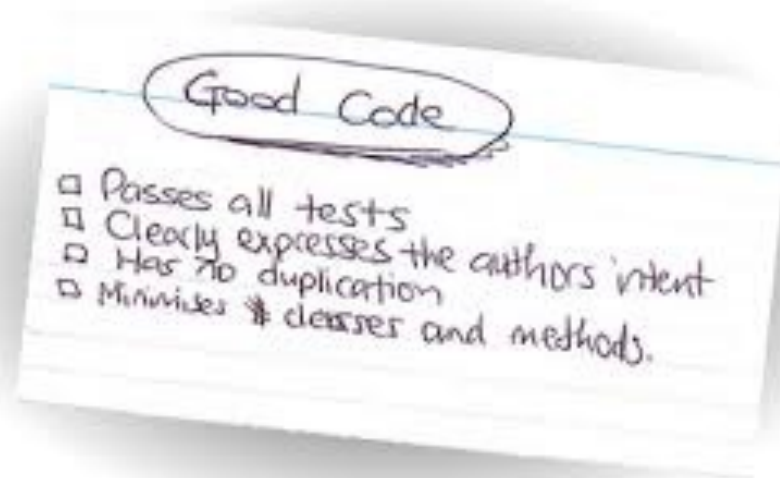 Good Code
□ Passes all tests
□ Clearly expresses the authors intent
□ Has no duplication
□ Minimises # classes and methods.